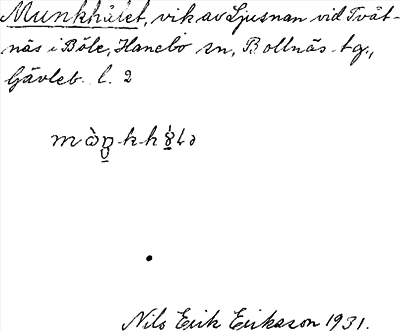 Munkhålet, vik av Ljusnan vid Tvåt-
näs i Böle, Hanebo sn, Bollnäs tg.,
Gävleb. l. 2
Nils Erik Eriksson 1931.